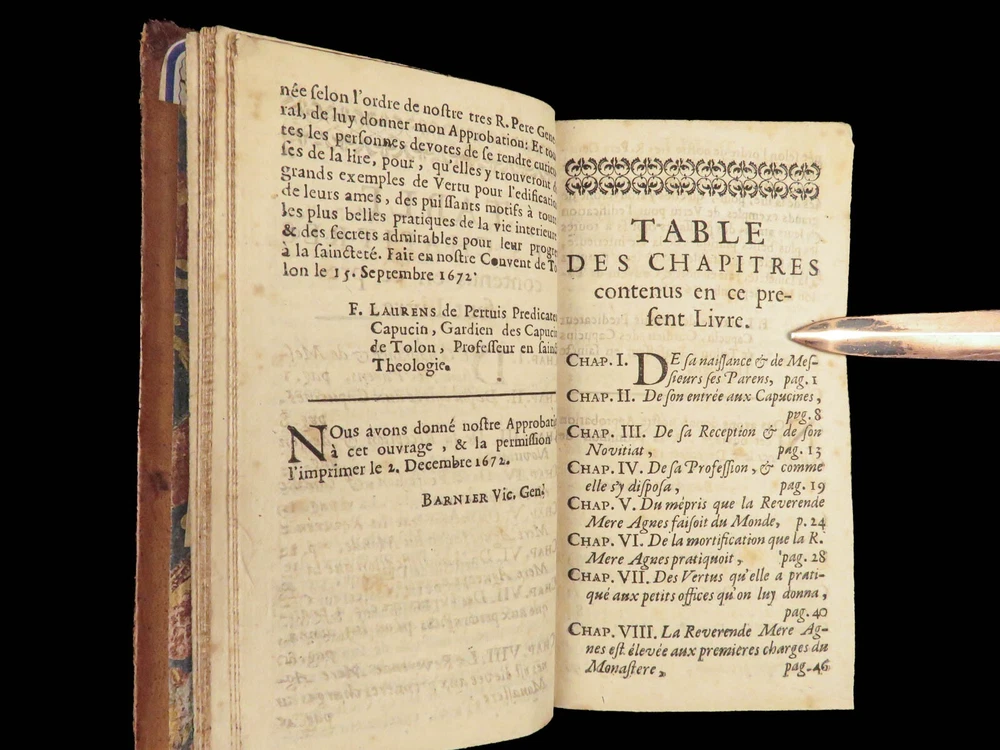 née ſelon l'ordre de noſtre tres R. Pere Gene
ral, de luy donner mon Approbation: Et tou
tes les perſonnes devotes de ſe rendre curieu
ſes de la lire, pour, qu'elles y trouveront d
grands exemples de Vertu pour l'edificatio
de leurs ames, des puiſſans motifs à tou
les plus belles pratiques de la vie interieure
& des ſecrets admirables pour leur progr
à la ſaincteté. Fait en noſtre Convent de To
lon le 15. Septembre 1672.
F. LAURENS de Pertuis Predicate
Capucin, Gardien des Capuci
de Tolon, Profeſſeur en ſain
Theologie.
NOus avons donné noſtre Approbati
à cet ouvrage, & la permiſſion
l'imprimer le 2. Decembre 1672.
BARNIER Vic. Gen.
TABLE
DES CHAPITRES
contenus en ce pre-
ſent Livre.
CHAP. I. DE ſa naiſſance & de Meſ-
ſieurs ſes Parens, pag. 1
CHAP. II. De ſon entrée aux Capucines,
pvg. 8
CHAP. III. De ſa Reception & de ſon
Novitiat, pag. 13
CHAP. IV. De ſa Profeſſion, & comme
elle s'y diſpoſa, pag. 19
CHAP. V. Du mépris que la Reverende
Mere Agnes faiſoit du Monde, p. 24
CHAP. VI. De la mortification que la R.
Mere Agnes pratiquoit, pag. 28
CHAP. VII. Des Vertus qu'elle a prati-
qué aux petits offices qu'on luy donna,
pag. 40
CHAP. VIII. La Reverende Mere Ag-
nes eſt élevée aux premieres charges du
Monaſtere, pag. 46